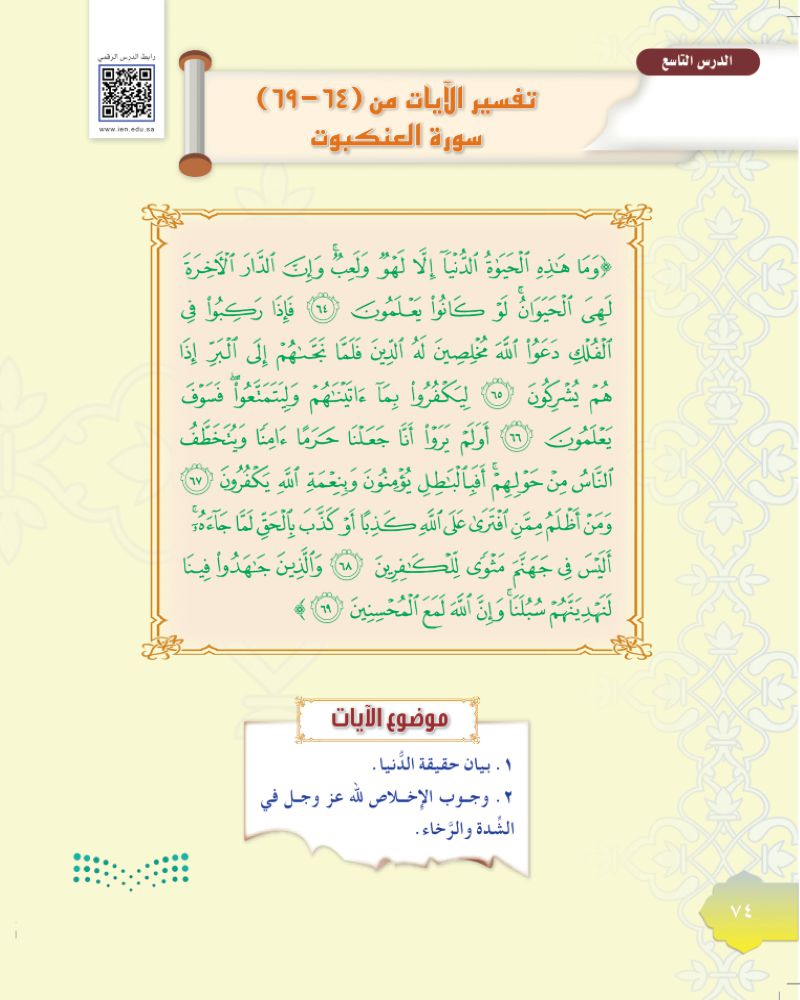 الدرس التاسع
رابط الدرس الرقمي
www.ien.edu.sa
تفسير الآيات من (٦٤-٦٩)
سورة العنكبوت
﴿وَمَا هَٰذِهِ ٱلْحَيَوٰةُ ٱلدُّنْيَآ إِلَّا لَهْوٌ وَلَعِبٌ ۚ وَإِنَّ ٱلدَّارَ ٱلْأَخِرَةَ
لَهِىَ ٱلْحَيَوَانُ ۚ لَوْ كَانُوا۟ يَعْلَمُونَ ٦٤ فَإِذَا رَكِبُوا۟ فِى
ٱلْفُلْكِ دَعَوُا۟ ٱللَّهَ مُخْلِصِينَ لَهُ ٱلدِّينَ فَلَمَّا نَجَّىٰهُمْ إِلَى ٱلْبَرِّ إِذَا
هُمْ يُشْرِكُونَ ٦٥ لِيَكْفُرُوا۟ بِمَآ ءَاتَيْنَٰهُمْ وَلِيَتَمَتَّعُوا۟ ۖ فَسَوْفَ
يَعْلَمُونَ ٦٦ أَوَلَمْ يَرَوْا۟ أَنَّا جَعَلْنَا حَرَمًا ءَامِنًا وَيُتَخَطَّفُ
ٱلنَّاسُ مِنْ حَوْلِهِمْ ۚ أَفَبِٱلْبَٰطِلِ يُؤْمِنُونَ وَبِنِعْمَةِ ٱللَّهِ يَكْفُرُونَ ٦٧
وَمَنْ أَظْلَمُ مِمَّنِ ٱفْتَرَىٰ عَلَى ٱللَّهِ كَذِبًا أَوْ كَذَّبَ بِٱلْحَقِّ لَمَّا جَآءَهُۥٓ ۚ
أَلَيْسَ فِى جَهَنَّمَ مَثْوًى لِّلْكَٰفِرِينَ ٦٨ وَٱلَّذِينَ جَٰهَدُوا۟ فِينَا
لَنَهْدِيَنَّهُمْ سُبُلَنَا ۚ وَإِنَّ ٱللَّهَ لَمَعَ ٱلْمُحْسِنِينَ ٦٩ ﴾
موضوع الآيات
١. بيان حقيقة الدُّنيا.
٢. وجـوب الإخـلاص لله عز وجـل في
الشِّدة والرَّخاء.
٧٤